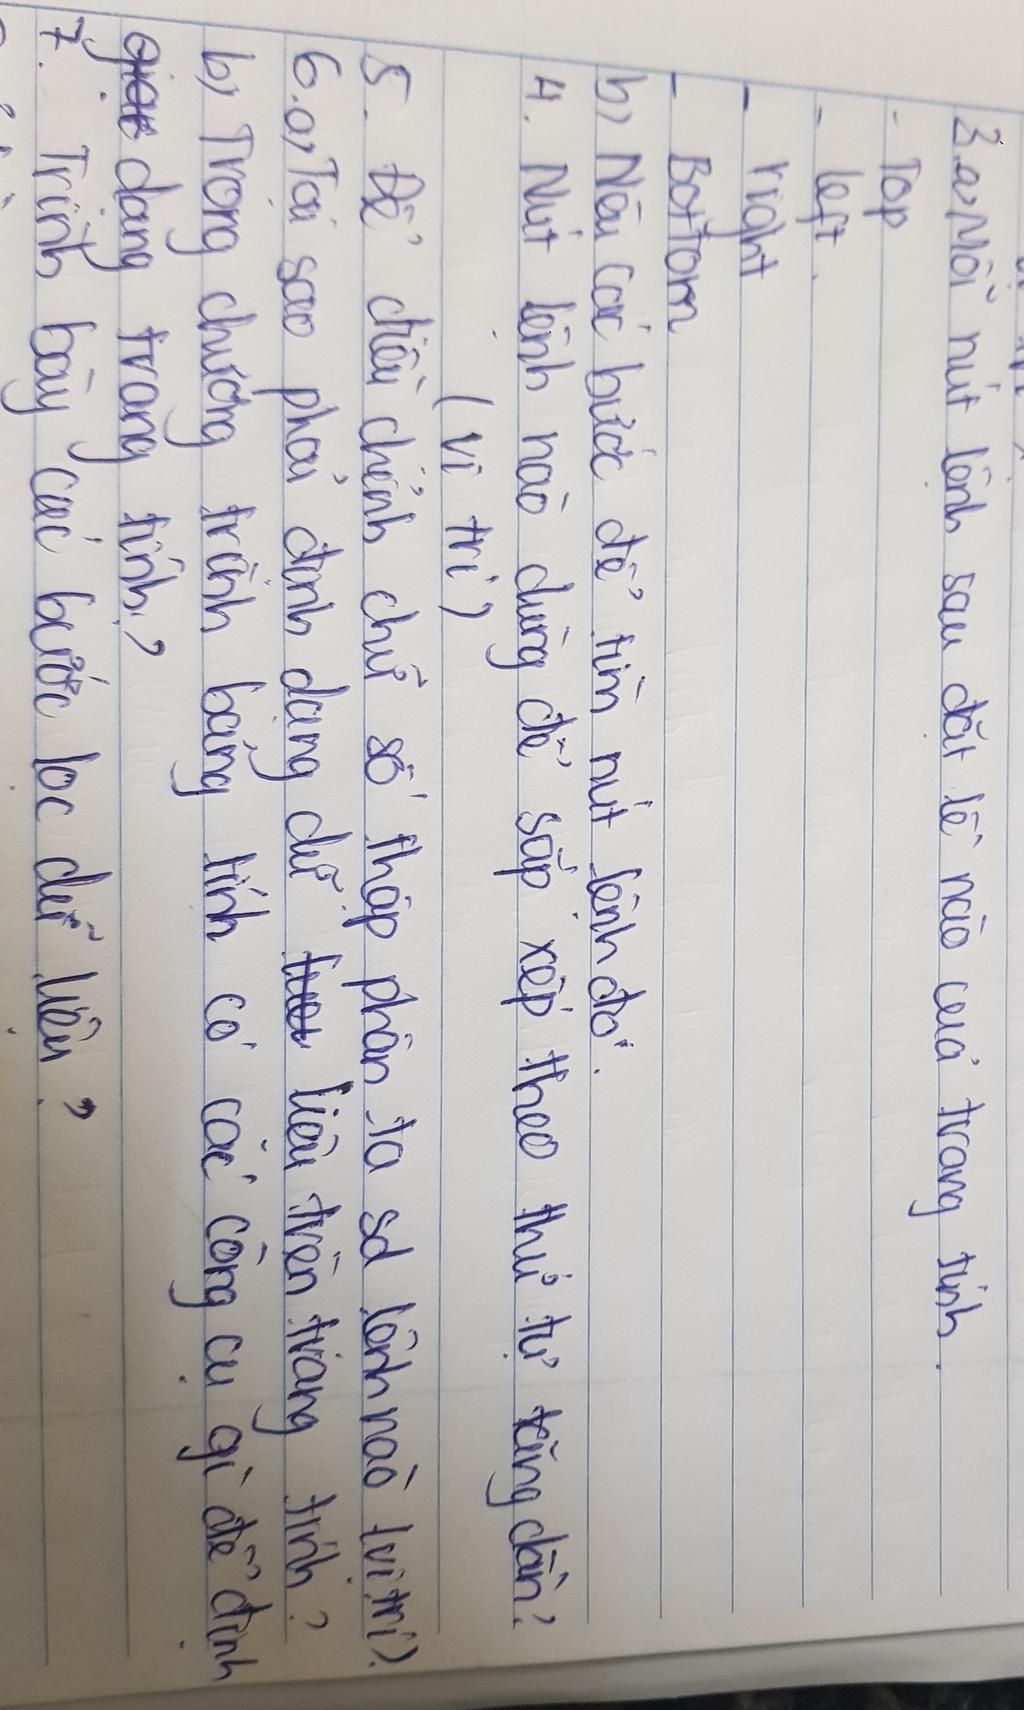 3.a, Mỗi nút lệnh sau đặt lề nào của trang tính.
- Top
- left.
- right
- Bottom
b, Nêu các bước để tìm nút lệnh đó.
4. Nút lệnh nào dùng để sắp xếp theo thứ tự tăng dần?
(vị trí)
5. Để điều chỉnh chữ số thập phân ta sd lệnh nào (vị trí).
6.a, Tại sao phải định dạng dữ liệu trên trang tính?
b, Trong chương trình bảng tính có các công cụ gì để định
dạng trang tính?
7. Trình bày các bước lọc dữ liệu?